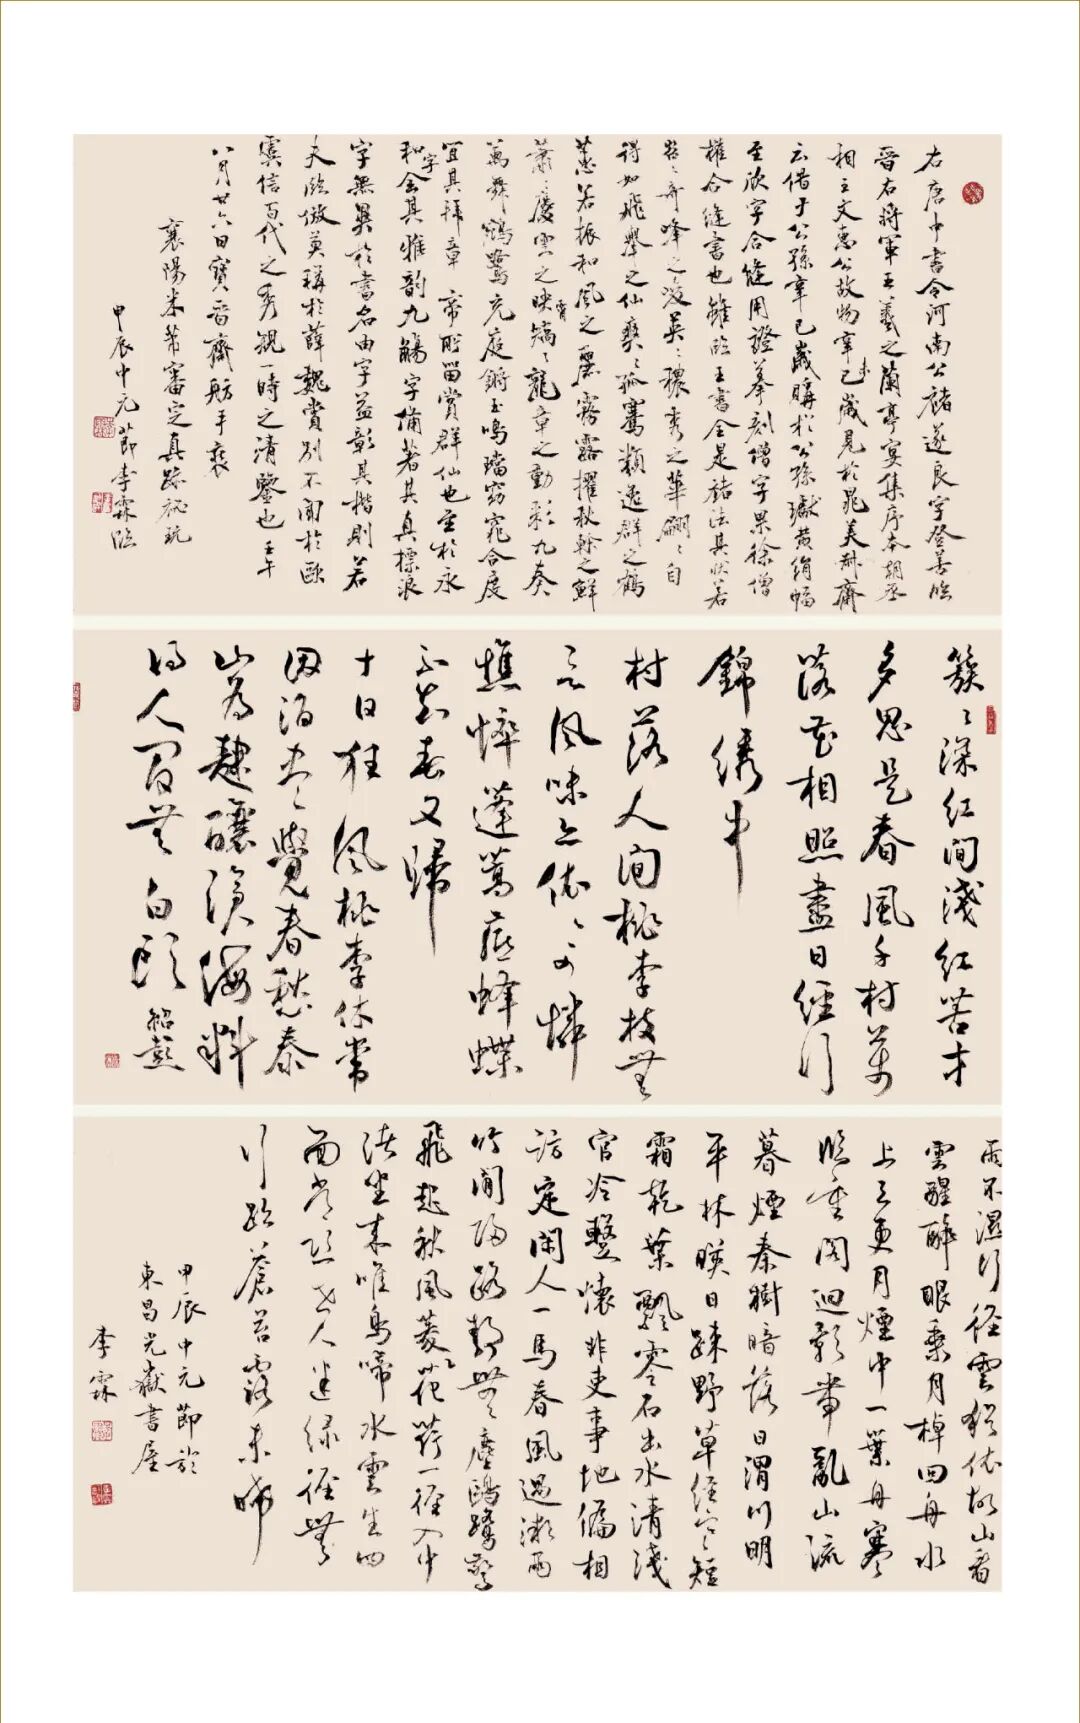 右唐中書令河南公褚遂良字登善臨
晉右將軍王羲之蘭亭宴集序本朝丞
相王文惠公故物辛巳歲見於晁美叔齋
云借于公孫辛巳歲購於公孫瓛黃絹幅
至欣字合縫用證摹刻僧字果徐僧
權合縫書也雖臨王書全是褚法其狀若
岩〻奇峰之峻英〻穠秀之華翩〻自
得如飛舉之仙爽〻孤騫類逸群之鶴
蕙若振和風之麗霧露擢秋幹之鮮
蕭〻慶雲之映霄矯〻龍章之動彩九奏
萬舞鵷鷺充庭鏘玉鳴璫窈窕合度
宜其拜章帝所留賞群仙也至於永
和字合其雅韻九觴字備著其真標浪
字無異於書名由字益彰其楷則若
夫臨倣莫稱於薛魏賞別不聞於歐
虞信百代之秀規一時之清鑒也壬午
八月廿六日寶晉齋舫手裝
襄陽米芾審定真跡秘玩
甲辰中元節李霖臨
簇〻深紅間淺紅苦才
多思是春風千村萬
落花相照盡日經行
錦綉中
村落人間桃李枝無
言風味亦依〻可憐
憔悴蓬蒿底蜂蝶
不知春又歸
十日狂風桃李休常
因酒盡覺春愁泰
山為麯釀滄海料
得人間無白頭 紹彭
雨不濕行徑雲猶依故山看
雲醒醉眼乘月棹回舟水
上三更月煙中一葉舟寒
臨重閣迴影帶亂山流
暮煙秦樹暗落日渭川明
平林暎日疎野草經寒短
霜乾葉飄零石出水清淺
官冷整懷非吏事地偏相
訪定閑人一馬春風過漵雨
竹間歸路靜無塵鷗鷺驚
飛起秋風菱花荷一徑入中
渚坐來唯鳥啼水雲生四
面 人迷綠徑無
行跡蒼苔露未晞
甲辰中元節於
東昌光嶽書屋
李霖